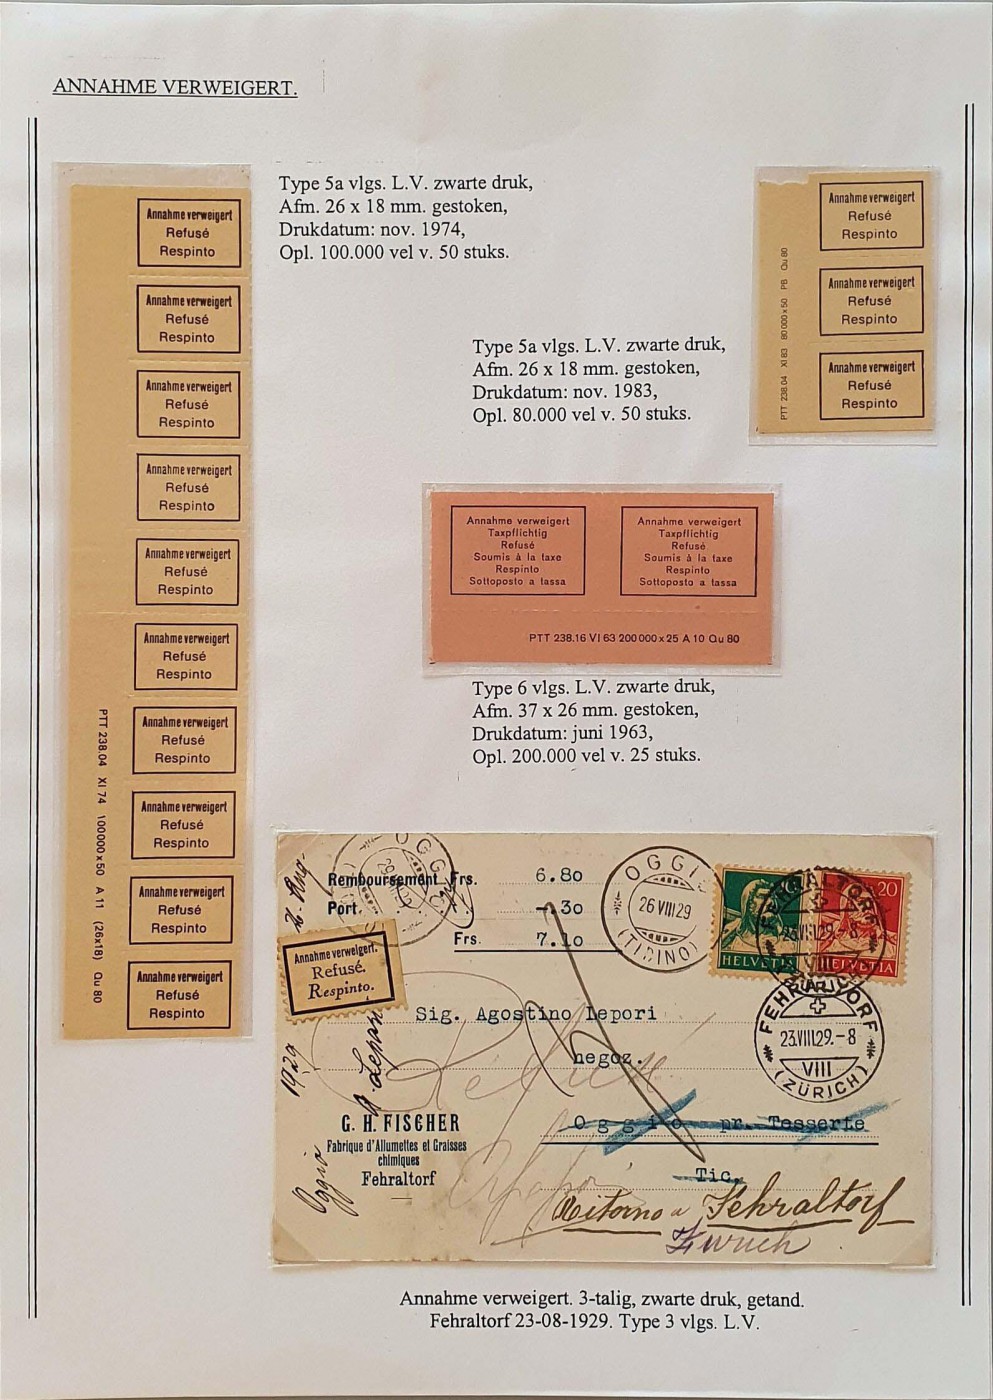 ANNAHME VERWEIGERT.
Type 5a vlgs. L.V. zwarte druk,
Afm. 26 x 18 mm. gestoken,
Drukdatum: nov. 1974,
Opl. 100.000 vel v. 50 stuks.
Annahme verweigert
Refusé
Respinto
Annahme verweigert
Refusé
Respinto
Annahme verweigert
Refusé
Respinto
Annahme verweigert
Refusé
Respinto
Annahme verweigert
Refusé
Respinto
Annahme verweigert
Refusé
Respinto
Annahme verweigert
Refusé
Respinto
Annahme verweigert
Refusé
Respinto
Annahme verweigert
Refusé
Respinto
Annahme verweigert
Refusé
Respinto
PTT 238.04 XI 74 100000 x 50 A 11 (26x18) Qu 80
Annahme verweigert
Refusé
Respinto
Annahme verweigert
Refusé
Respinto
Annahme verweigert
Refusé
Respinto
PTT 238.04 XI 83 80 000 x 50 PB Qu 80
Type 5a vlgs. L.V. zwarte druk,
Afm. 26 x 18 mm. gestoken,
Drukdatum: nov. 1983,
Opl. 80.000 vel v. 50 stuks.
Annahme verweigert
Taxpflichtig
Refusé
Soumis à la taxe
Respinto
Sottoposto a tassa
Annahme verweigert
Taxpflichtig
Refusé
Soumis à la taxe
Respinto
Sottoposto a tassa
PTT 238.16 VI 63 200 000 x 25 A 10 Qu 80
Type 6 vlgs. L.V. zwarte druk,
Afm. 37 x 26 mm. gestoken,
Drukdatum: juni 1963,
Opl. 200.000 vel v. 25 stuks.
Remboursement Frs. 6.80
Port. -.30
Frs. 7.10
OGGIO
26 VIII 29
(TICINO)
20
HELVETIA
HELVETIA
FEHRALTORF
23.VIII.29.-8
VIII
(ZÜRICH)
Annahme verweigert.
Refusé.
Respinto.
Sig. Agostino Lepori
negoz.
Oggio pr. Tesserte
Tic.
G. H. FISCHER
Fabrique d'Allumettes et Graisses
chimiques
Fehraltorf
Oggio
1929
Ritorno a Fehraltorf
Zurich
Annahme verweigert. 3-talig, zwarte druk, getand.
Fehraltorf 23-08-1929. Type 3 vlgs. L.V.